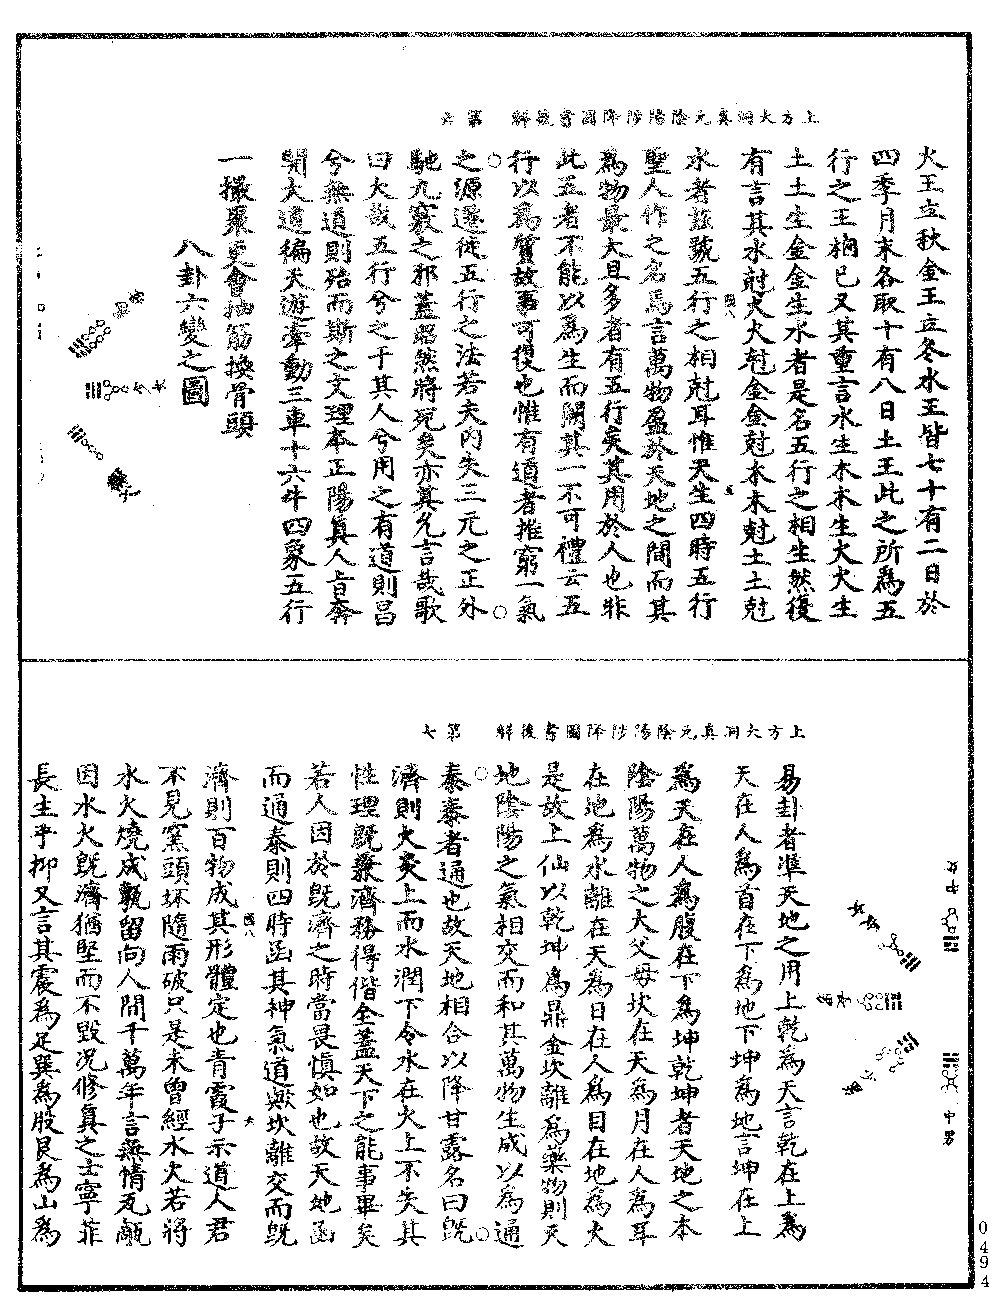 上方大洞真元陰陽陟降圖書後解　第六
火王立秋金王立冬水王皆七十有二日於
四季月末各取十有八日土王此之所爲五
行之王相已又其重言水生木木生火火生
土土生金金生水者是名五行之相生然復
有言其水尅火火尅金金尅木木尅土土尅
水者玆號五行之相尅耳惟天生四時五行
聖人作之名焉言萬物盈於天地之間而其
爲物最大且多者有五行矣其用於人也非
此五者不能以爲生而闕其一不可禮云五
行以爲質故事可復也惟有道者推窮一氣
之源遷徙五行之法若夫內失三元之正外
馳九竅之邪蓋昭然將死矣亦奚允言哉歌
曰大哉五行兮之于其人兮用之有道則昌
兮無道則殆而斯之文理本正陽真人旨奔
開大道徧天遊牽動三車十六牛四象五行
一撮聚更會抽筋換骨頭
八卦六變之圖
上方大洞真元陰陽陟降圖書後解　第七
中女
中男
易卦者準天地之用上乾爲天言乾在上爲
天在人爲首在下爲地下坤爲地言坤在上
爲天在人爲腹在下爲坤乾坤者天地之本
陰陽萬物之大父母坎在天爲月在人爲耳
在地爲水離在天爲日在人爲目在地爲火
是故上仙以乾坤爲鼎金坎離爲藥物則天
地陰陽之氣相交而和其萬物生成以爲通
泰泰者通也故天地相合以降甘露名曰旣
濟則火炎上而水潤下令水在火上不失其
性理旣兼濟務得偕全蓋天下之能事畢矣
若人因於旣濟之時當畏慎如也故天地函
而通泰則四時函其神氣道與坎離交而旣
濟則百物成其形體定也青霞子示道人君
不見窯頭坏隨雨破只是未曾經水火若將
水火燒成甎留向人間千萬年言無情瓦甎
因水火旣濟猶堅而不毀況修真之士寧非
長生乎抑又言其震爲足巽爲股艮爲山爲
0494